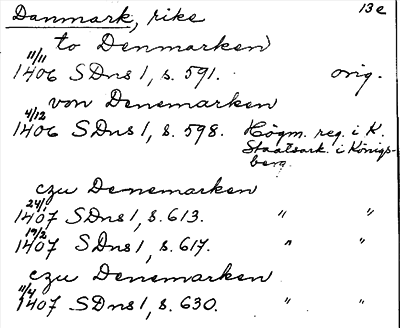 Danmark, rike 13e
to Denmarken
11/11
1406 SDns1, s. 591. orig.
von Denemarken
4/12
1406 SDns1, s. 598. Högm. reg. i K.
Staatsark. i Königs-
berg.
czu Denemarken
24/1
1407 SDns1, s. 613. " "
19/2
1407 SDns1, s. 617. " "
czu Denemarken
11/4
1407 SDns1, s. 630. " "